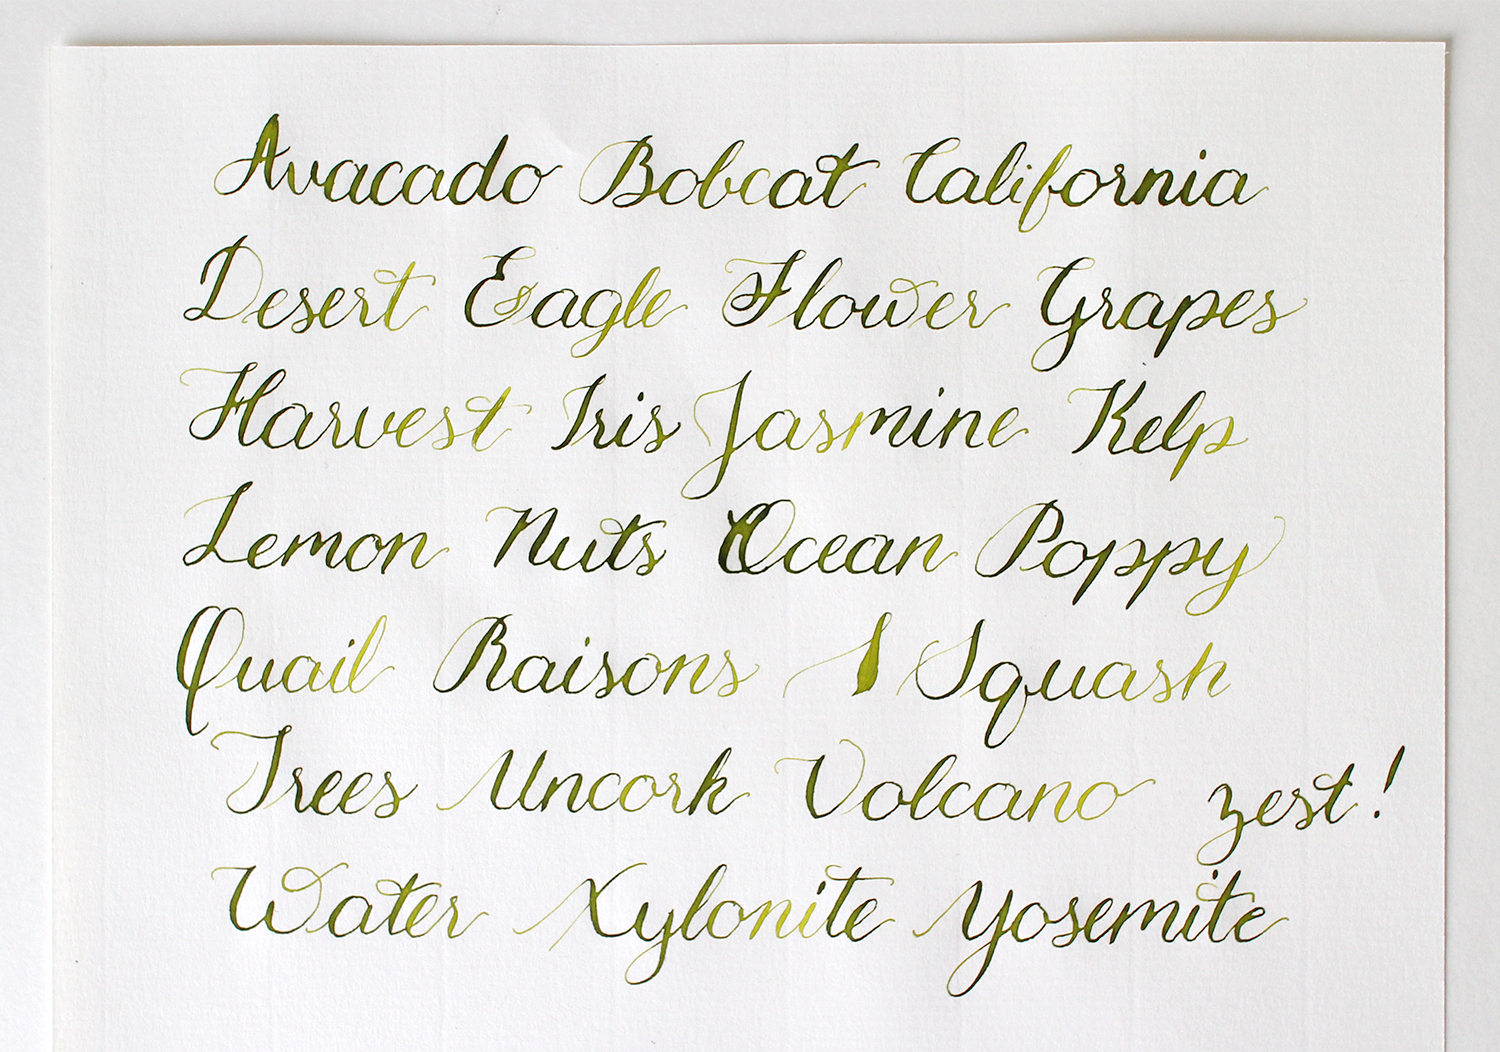 Avacado Bobcat California
Desert Eagle Flower Grapes
Harvest Iris Jasmine Kelp
Lemon Nuts Ocean Poppy
Quail Raisons S Squash
Trees Uncork Volcano zest!
Water Xylonite Yosemite